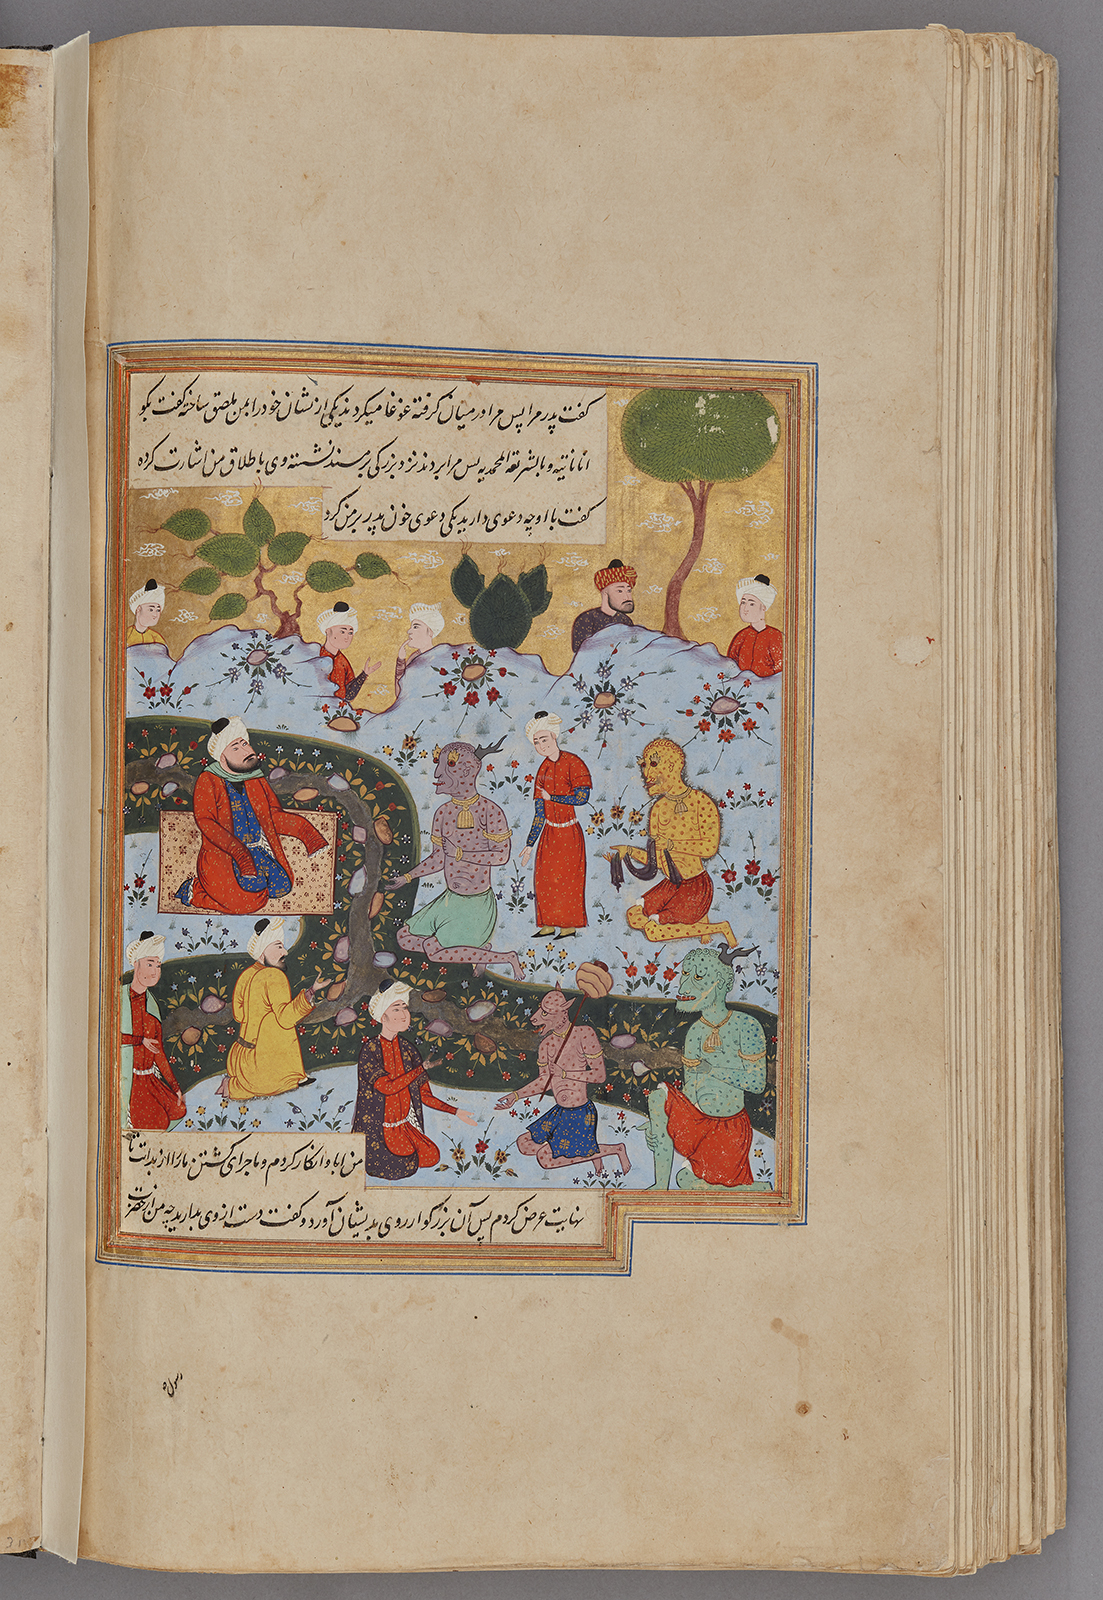 گفت پدر مرا پس مرا در میان گرفته غوغا میکردند یکی از نشان خود را بمن ملصق ساخته گفت بگو
انا بالله و بالشریعه المحمدیه پس مرا بردند نزد بزرگی بر مسند نشسته وی باطلاق من اشارت کرده
گفت با او چه دعوی دارید یکی دعوی خون پدر بر من کرد
من ابا و انکار کردم و ماجرای کشتن مار را از بدایت تا
نهایت عرض کردم پس آن بزرگوار روی بدیشان آورد و گفت دست از وی بدارید چه من از حضرت
رسول